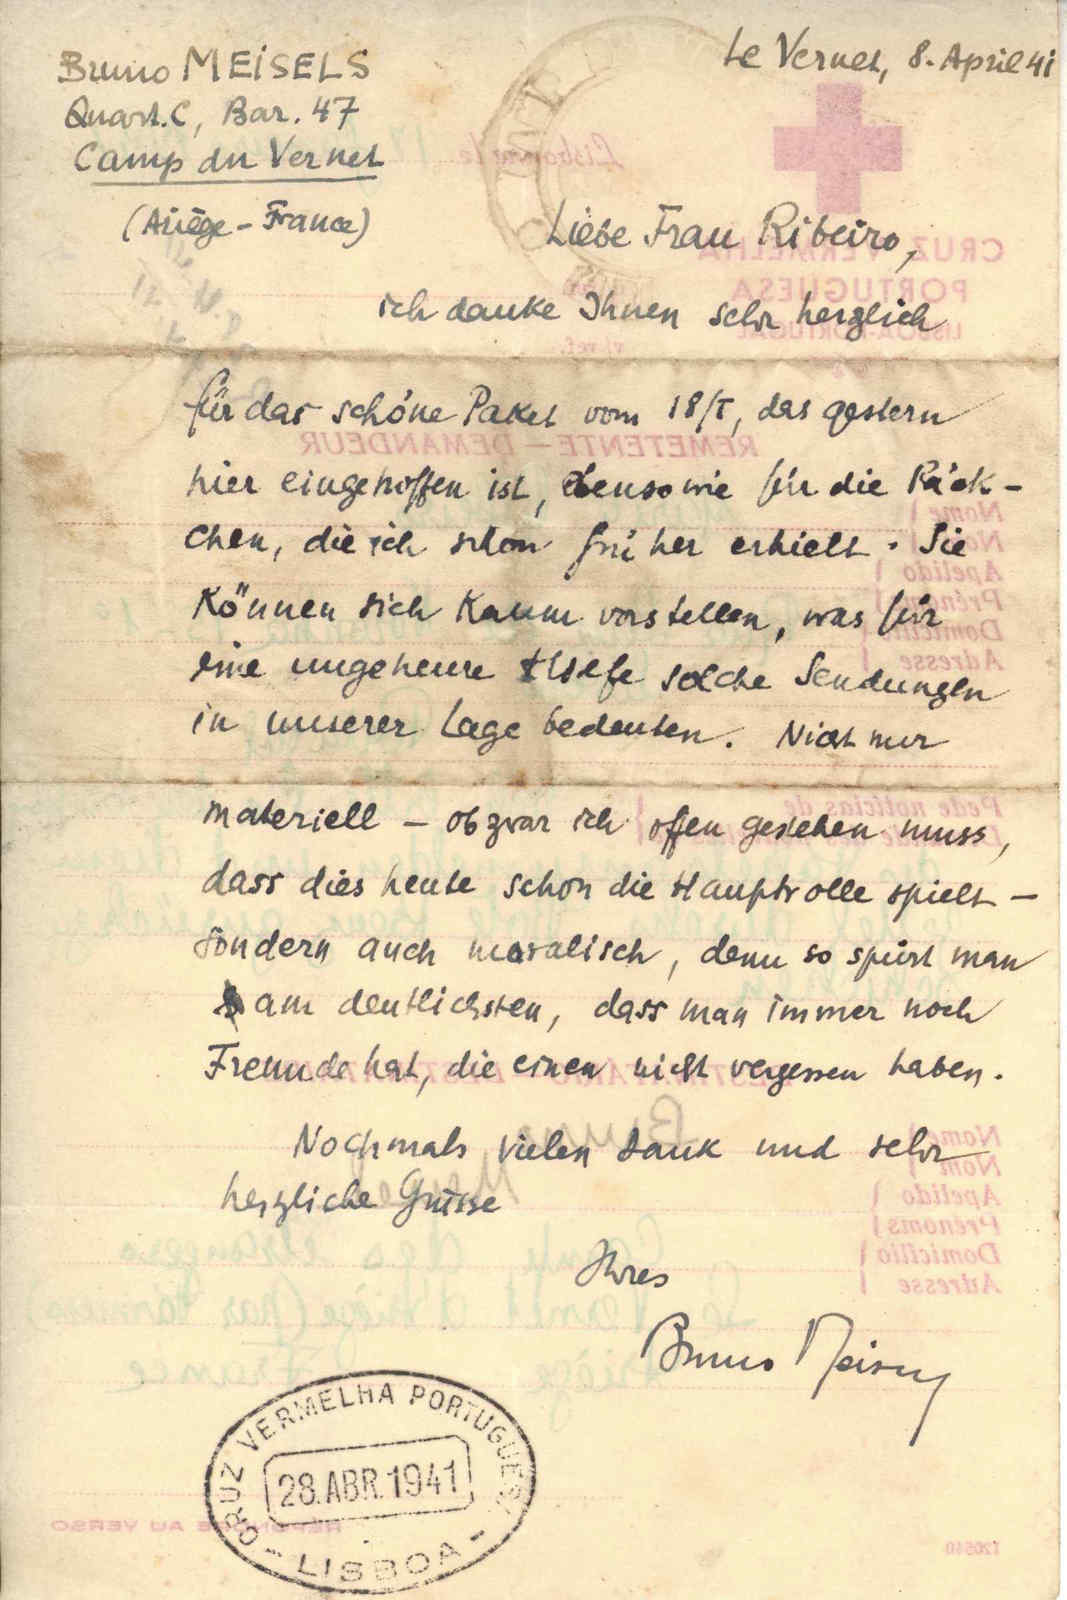 Bruno MEISELS
Quart. C, Bar. 47
Camp du Vernet
(Ariège - France)
Le Vernet, 8. April 41
Liebe Frau Ribeiro,
ich danke Ihnen sehr herzlich
für das schöne Paket vom 18/I, das gestern
hier eingetroffen ist, ebenso wie für die Päck-
chen, die ich schon früher erhielt. Sie
können sich kaum vorstellen, was für
eine ungeheure Hilfe solche Sendungen
in unserer Lage bedeuten. Nicht nur
materiell - obzwar ich offen gestehen muss,
dass dies heute schon die Hauptrolle spielt -
sondern auch moralisch, denn so spürt man
am deutlichsten, dass man immer noch
Freunde hat, die einen nicht vergessen haben.
Nochmals vielen Dank und sehr
herzliche Grüsse
Ihres
Bruno Meisels
CRUZ VERMELHA PORTUGUESA
28. ABR. 1941
- LISBOA -
CRUZ VERMELHA
PORTUGUESA
LISBOA-PORTUGAL
REMETENTE - DEMANDEUR
Nome
Nom
Apelido
Prénoms
Domicílio
Adresse
Pede notícias de
Nome
Nom
Apelido
Prénoms
Domicílio
Adresse
RÉPONSE AU VERSO